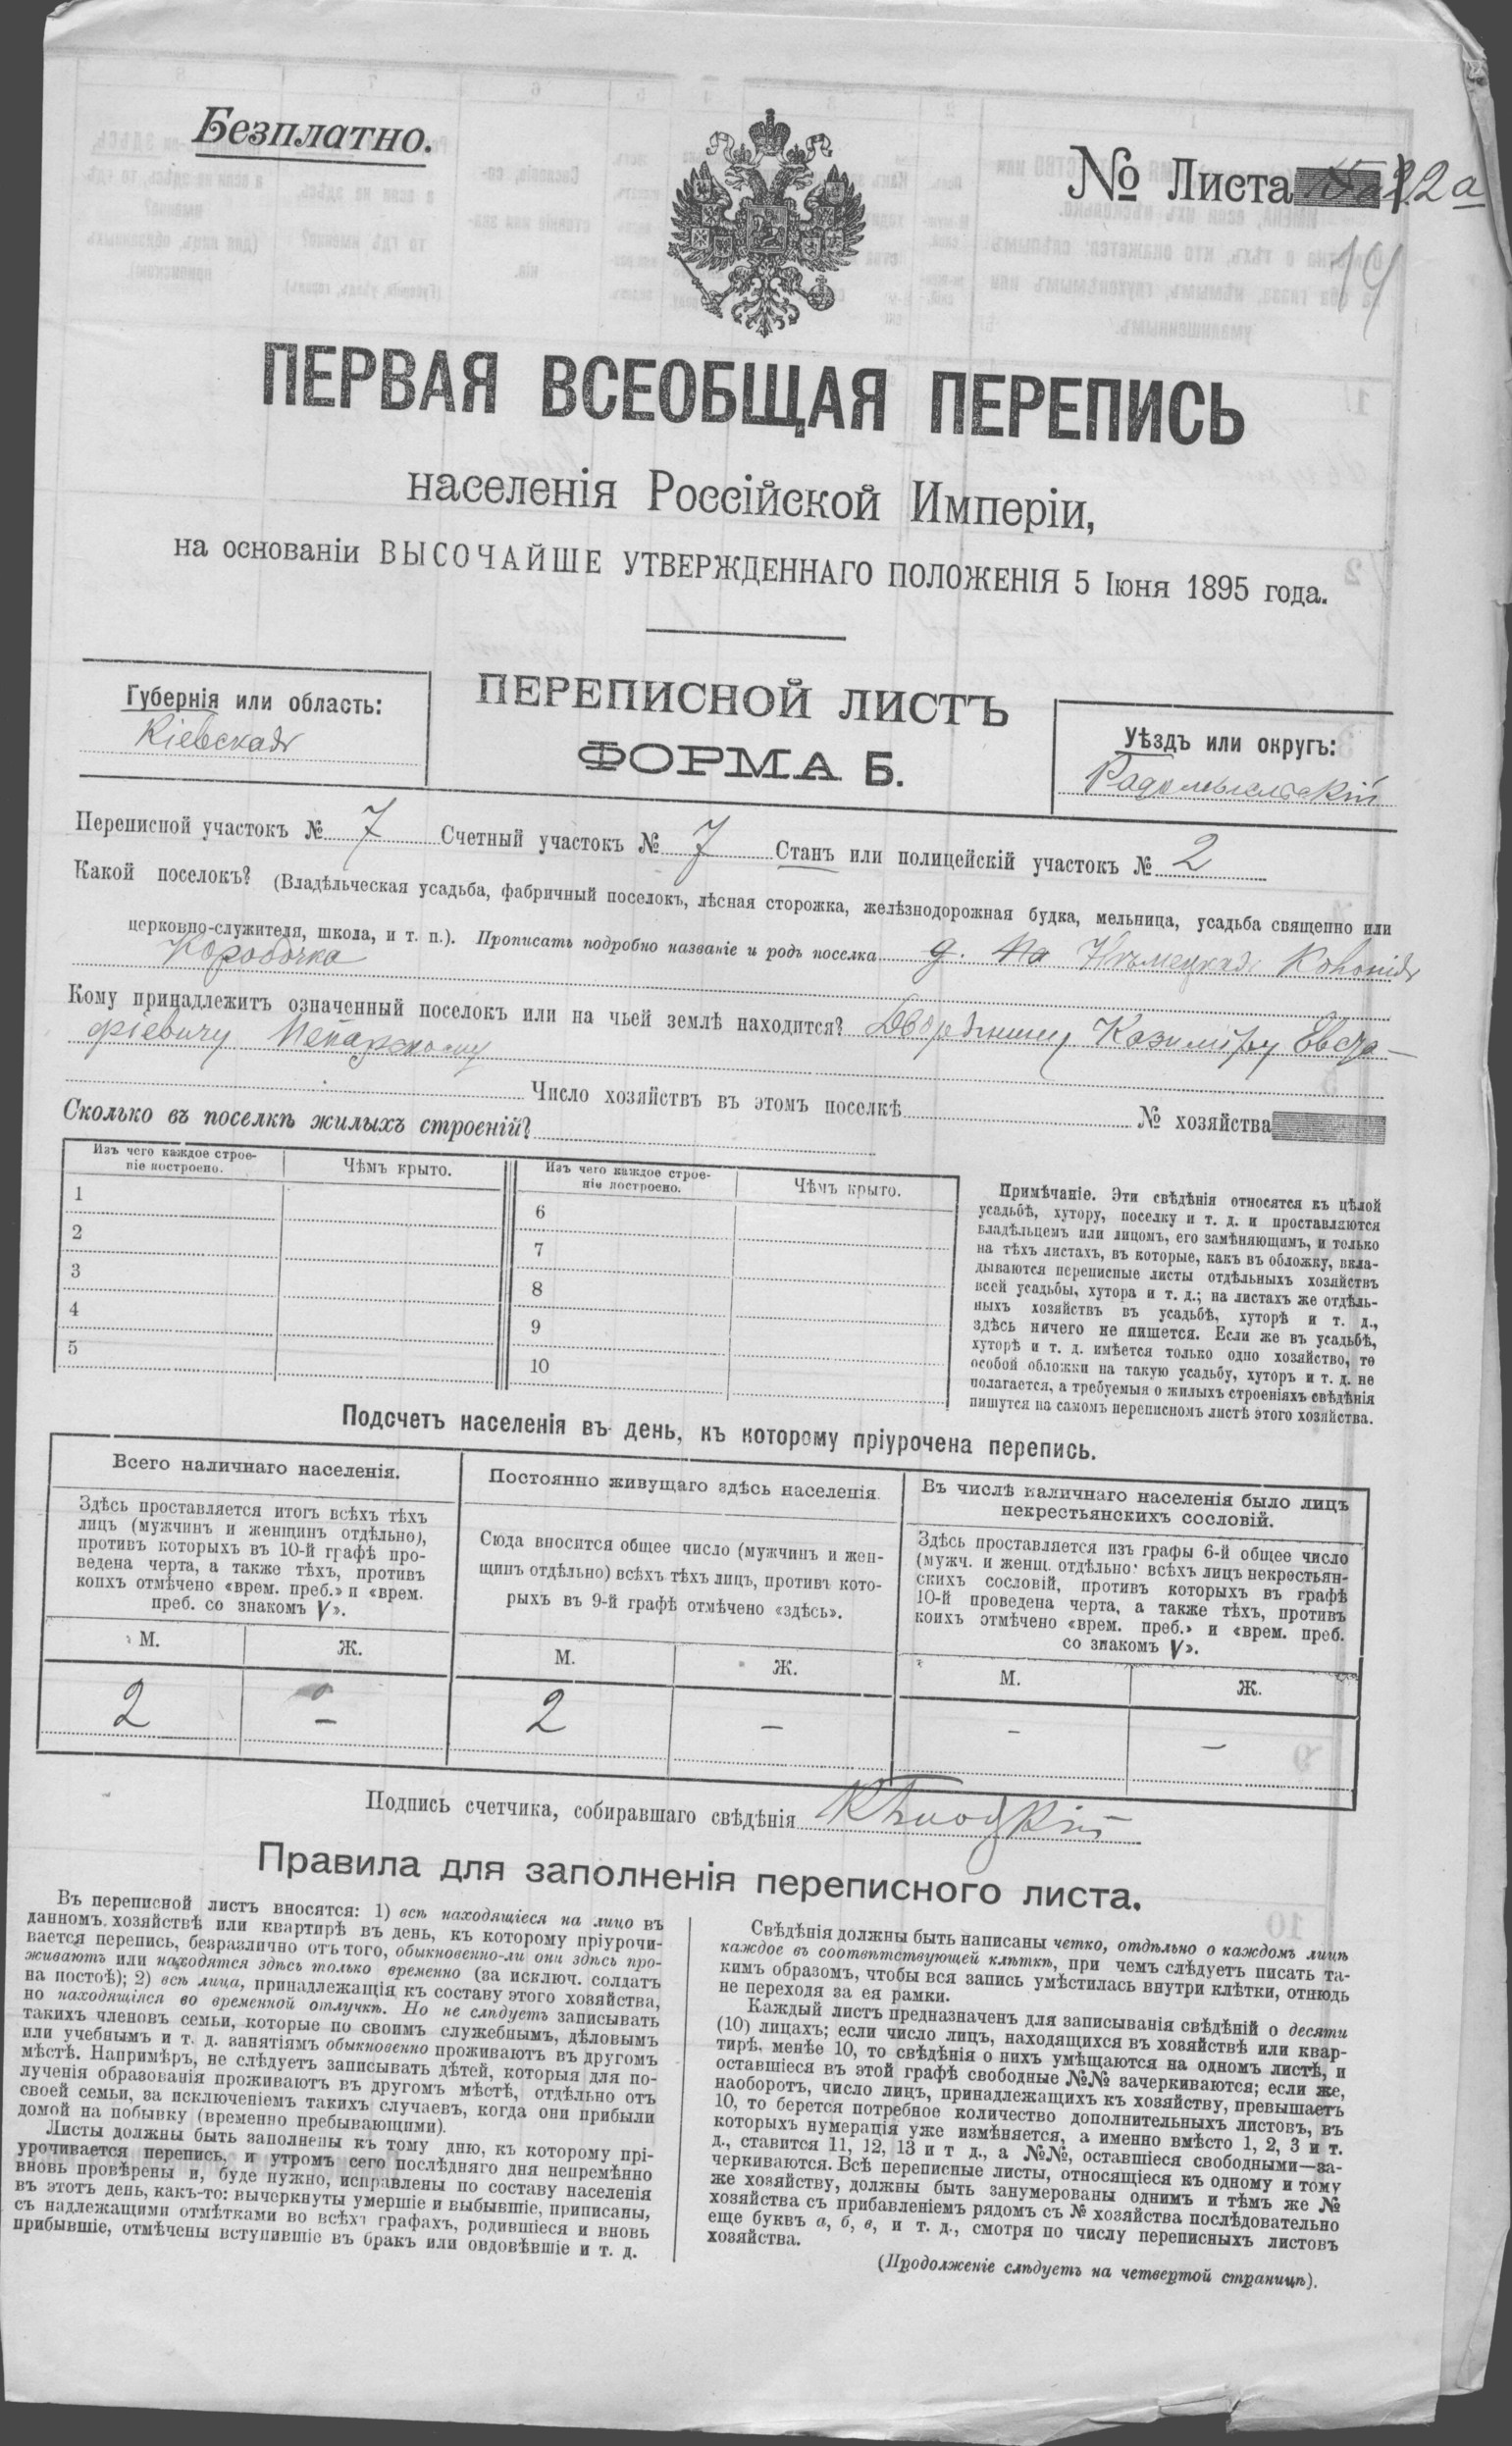 Безплатно.
№ Листа 22а
14
ПЕРВАЯ ВСЕОБЩАЯ ПЕРЕПИСЬ
населенія Россійской Имперіи,
на основаніи ВЫСОЧАЙШЕ УТВЕРЖДЕННАГО ПОЛОЖЕНІЯ 5 Іюня 1895 года.
Губернія или область:
Кіевская
ПЕРЕПИСНОЙ ЛИСТЪ
ФОРМА Б.
Уѣздъ или округъ:
Радомысльскій
Переписной участокъ № 7 Счетный участокъ № 7 Станъ или полицейскій участокъ № 2
Какой поселокъ? (Владѣльческая усадьба, фабричный поселокъ, лѣсная сторожка, желѣзнодорожная будка, мельница, усадьба священно или
церковно-служителя, школа, и т. п.). Прописать подробно названіе и родъ поселка д. Нѣмецкая Колонія
Коробочка
Кому принадлежитъ означенный поселокъ или на чьей землѣ находится? Дворянину Казиміру Евста-
фіевичу
Число хозяйствъ въ этомъ поселкѣ № хозяйства
Сколько въ поселкѣ жилыхъ строеній?
Изъ чего каждое строе-
ніе построено.
Чѣмъ крыто.
Изъ чего каждое строе-
ніе построено.
Чѣмъ крыто.
1
2
3
4
5
6
7
8
9
10
Примѣчаніе. Эти свѣдѣнія относятся къ цѣлой
усадьбѣ, хутору, поселку и т. д. и проставляются
владѣльцемъ или лицомъ, его замѣняющимъ, и только
на тѣхъ листахъ, въ которые, какъ въ обложку, вкла-
дываются переписные листы отдѣльныхъ хозяйствъ
всей усадьбы, хутора и т. д.; на листахъ же отдѣль-
ныхъ хозяйствъ въ усадьбѣ, хуторѣ и т. д.,
здѣсь ничего не пишется. Если же въ усадьбѣ,
хуторѣ и т. д. имѣется только одно хозяйство, то
особой обложки на такую усадьбу, хуторъ и т. д. не
полагается, а требуемыя о жилыхъ строеніяхъ свѣдѣнія
пишутся на самомъ переписномъ листѣ этого хозяйства.
Подсчетъ населенія въ день, къ которому пріурочена перепись.
Всего наличнаго населенія.
Здѣсь проставляется итогъ всѣхъ тѣхъ
лицъ (мужчинъ и женщинъ отдѣльно),
противъ которыхъ въ 10-й графѣ про-
ведена черта, а также тѣхъ, противъ
коихъ отмѣчено «врем. преб.» и «врем.
преб. со знакомъ V».
М. Ж.
2 –
Постоянно живущаго здѣсь населенія.
Сюда вносится общее число (мужчинъ и жен-
щинъ отдѣльно) всѣхъ тѣхъ лицъ, противъ кото-
рыхъ въ 9-й графѣ отмѣчено «здѣсь».
М. Ж.
2 –
Въ числѣ наличнаго населенія было лицъ
некрестьянскихъ сословій.
Здѣсь проставляется изъ графы 6-й общее число
(мужч. и женщ. отдѣльно) всѣхъ лицъ некрестьян-
скихъ сословій, противъ которыхъ въ графѣ
10-й проведена черта, а также тѣхъ, противъ
коихъ отмѣчено «врем. преб.» и «врем. преб.
со знакомъ V».
М. Ж.
– –
Подпись счетчика, собиравшаго свѣдѣнія
Правила для заполненія переписного листа.
Въ переписной листъ вносятся: 1) всѣ находящіеся на лицо въ
данномъ хозяйствѣ или квартирѣ въ день, къ которому пріурочи-
вается перепись, безразлично отъ того, обыкновенно-ли они здѣсь про-
живаютъ или находятся здѣсь только временно (за исключ. солдатъ
на постоѣ); 2) всѣ лица, принадлежащія къ составу этого хозяйства,
но находящіяся во временной отлучкѣ. Но не слѣдуетъ записывать
такихъ членовъ семьи, которые по своимъ служебнымъ, дѣловымъ
или учебнымъ и т. д. занятіямъ обыкновенно проживаютъ въ другомъ
мѣстѣ. Напримѣръ, не слѣдуетъ записывать дѣтей, которыя для по-
лученія образованія проживаютъ въ другомъ мѣстѣ, отдѣльно отъ
своей семьи, за исключеніемъ такихъ случаевъ, когда они прибыли
домой на побывку (временно пребывающими).
Листы должны быть заполнены къ тому дню, къ которому прі-
урочивается перепись, и утромъ сего послѣдняго дня непремѣнно
вновь провѣрены и, буде нужно, исправлены по составу населенія
въ этотъ день, какъ-то: вычеркнуты умершіе и выбывшіе, приписаны,
съ надлежащими отмѣтками во всѣхъ графахъ, родившіеся и вновь
прибывшіе, отмѣчены вступившіе въ бракъ или овдовѣвшіе и т. д.
Свѣдѣнія должны быть написаны четко, отдѣльно о каждомъ лицѣ
каждое въ соотвѣтствующей клѣткѣ, при чемъ слѣдуетъ писать та-
кимъ образомъ, чтобы вся запись умѣстилась внутри клѣтки, отнюдь
не переходя за ея рамки.
Каждый листъ предназначенъ для записыванія свѣдѣній о десяти
(10) лицахъ; если число лицъ, находящихся въ хозяйствѣ или квар-
тирѣ, менѣе 10, то свѣдѣнія о нихъ умѣщаются на одномъ листѣ, и
оставшіеся въ этой графѣ свободные №№ зачеркиваются; если же,
наоборотъ, число лицъ, принадлежащихъ къ хозяйству, превышаетъ
10, то берется потребное количество дополнительныхъ листовъ, въ
которыхъ нумерація уже измѣняется, а именно вмѣсто 1, 2, 3 и т.
д., ставится 11, 12, 13 и т д., а №№, оставшіеся свободными—за-
черкиваются. Всѣ переписные листы, относящіеся къ одному и тому
же хозяйству, должны быть занумерованы однимъ и тѣмъ же №
хозяйства съ прибавленіемъ рядомъ съ № хозяйства послѣдовательно
еще буквъ а, б, в, и т. д., смотря по числу переписныхъ листовъ
хозяйства.
(Продолженіе слѣдуетъ на четвертой страницѣ).